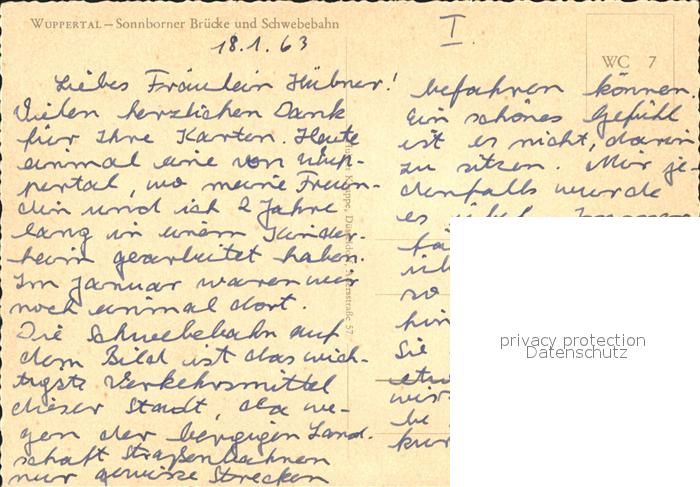 WUPPERTAL – Sonnborner Brücke und Schwebebahn
18.1.63
I.
WC 7
Liebes Fräulein Hübner!
Vielen herzlichen Dank
für Ihre Karten. Heute
einmal eine von Wup-
pertal, wo meine Freun-
din und ich 2 Jahre
lang in einem Kinder-
heim gearbeitet haben.
Im Januar waren wir
noch einmal dort.
Die Schwebebahn auf
dem Bild ist das wich-
tigste Verkehrsmittel
dieser Stadt, da we-
gen der bergigen Land-
schaft Straßenbahnen
nur gewisse Strecken
befahren können.
Ein schönes Gefühl
ist es nicht, darin
zu sitzen. Mir je-
denfalls wurde
es
so
hin
Sie
wir
be
kur
privacy protection
Datenschutz